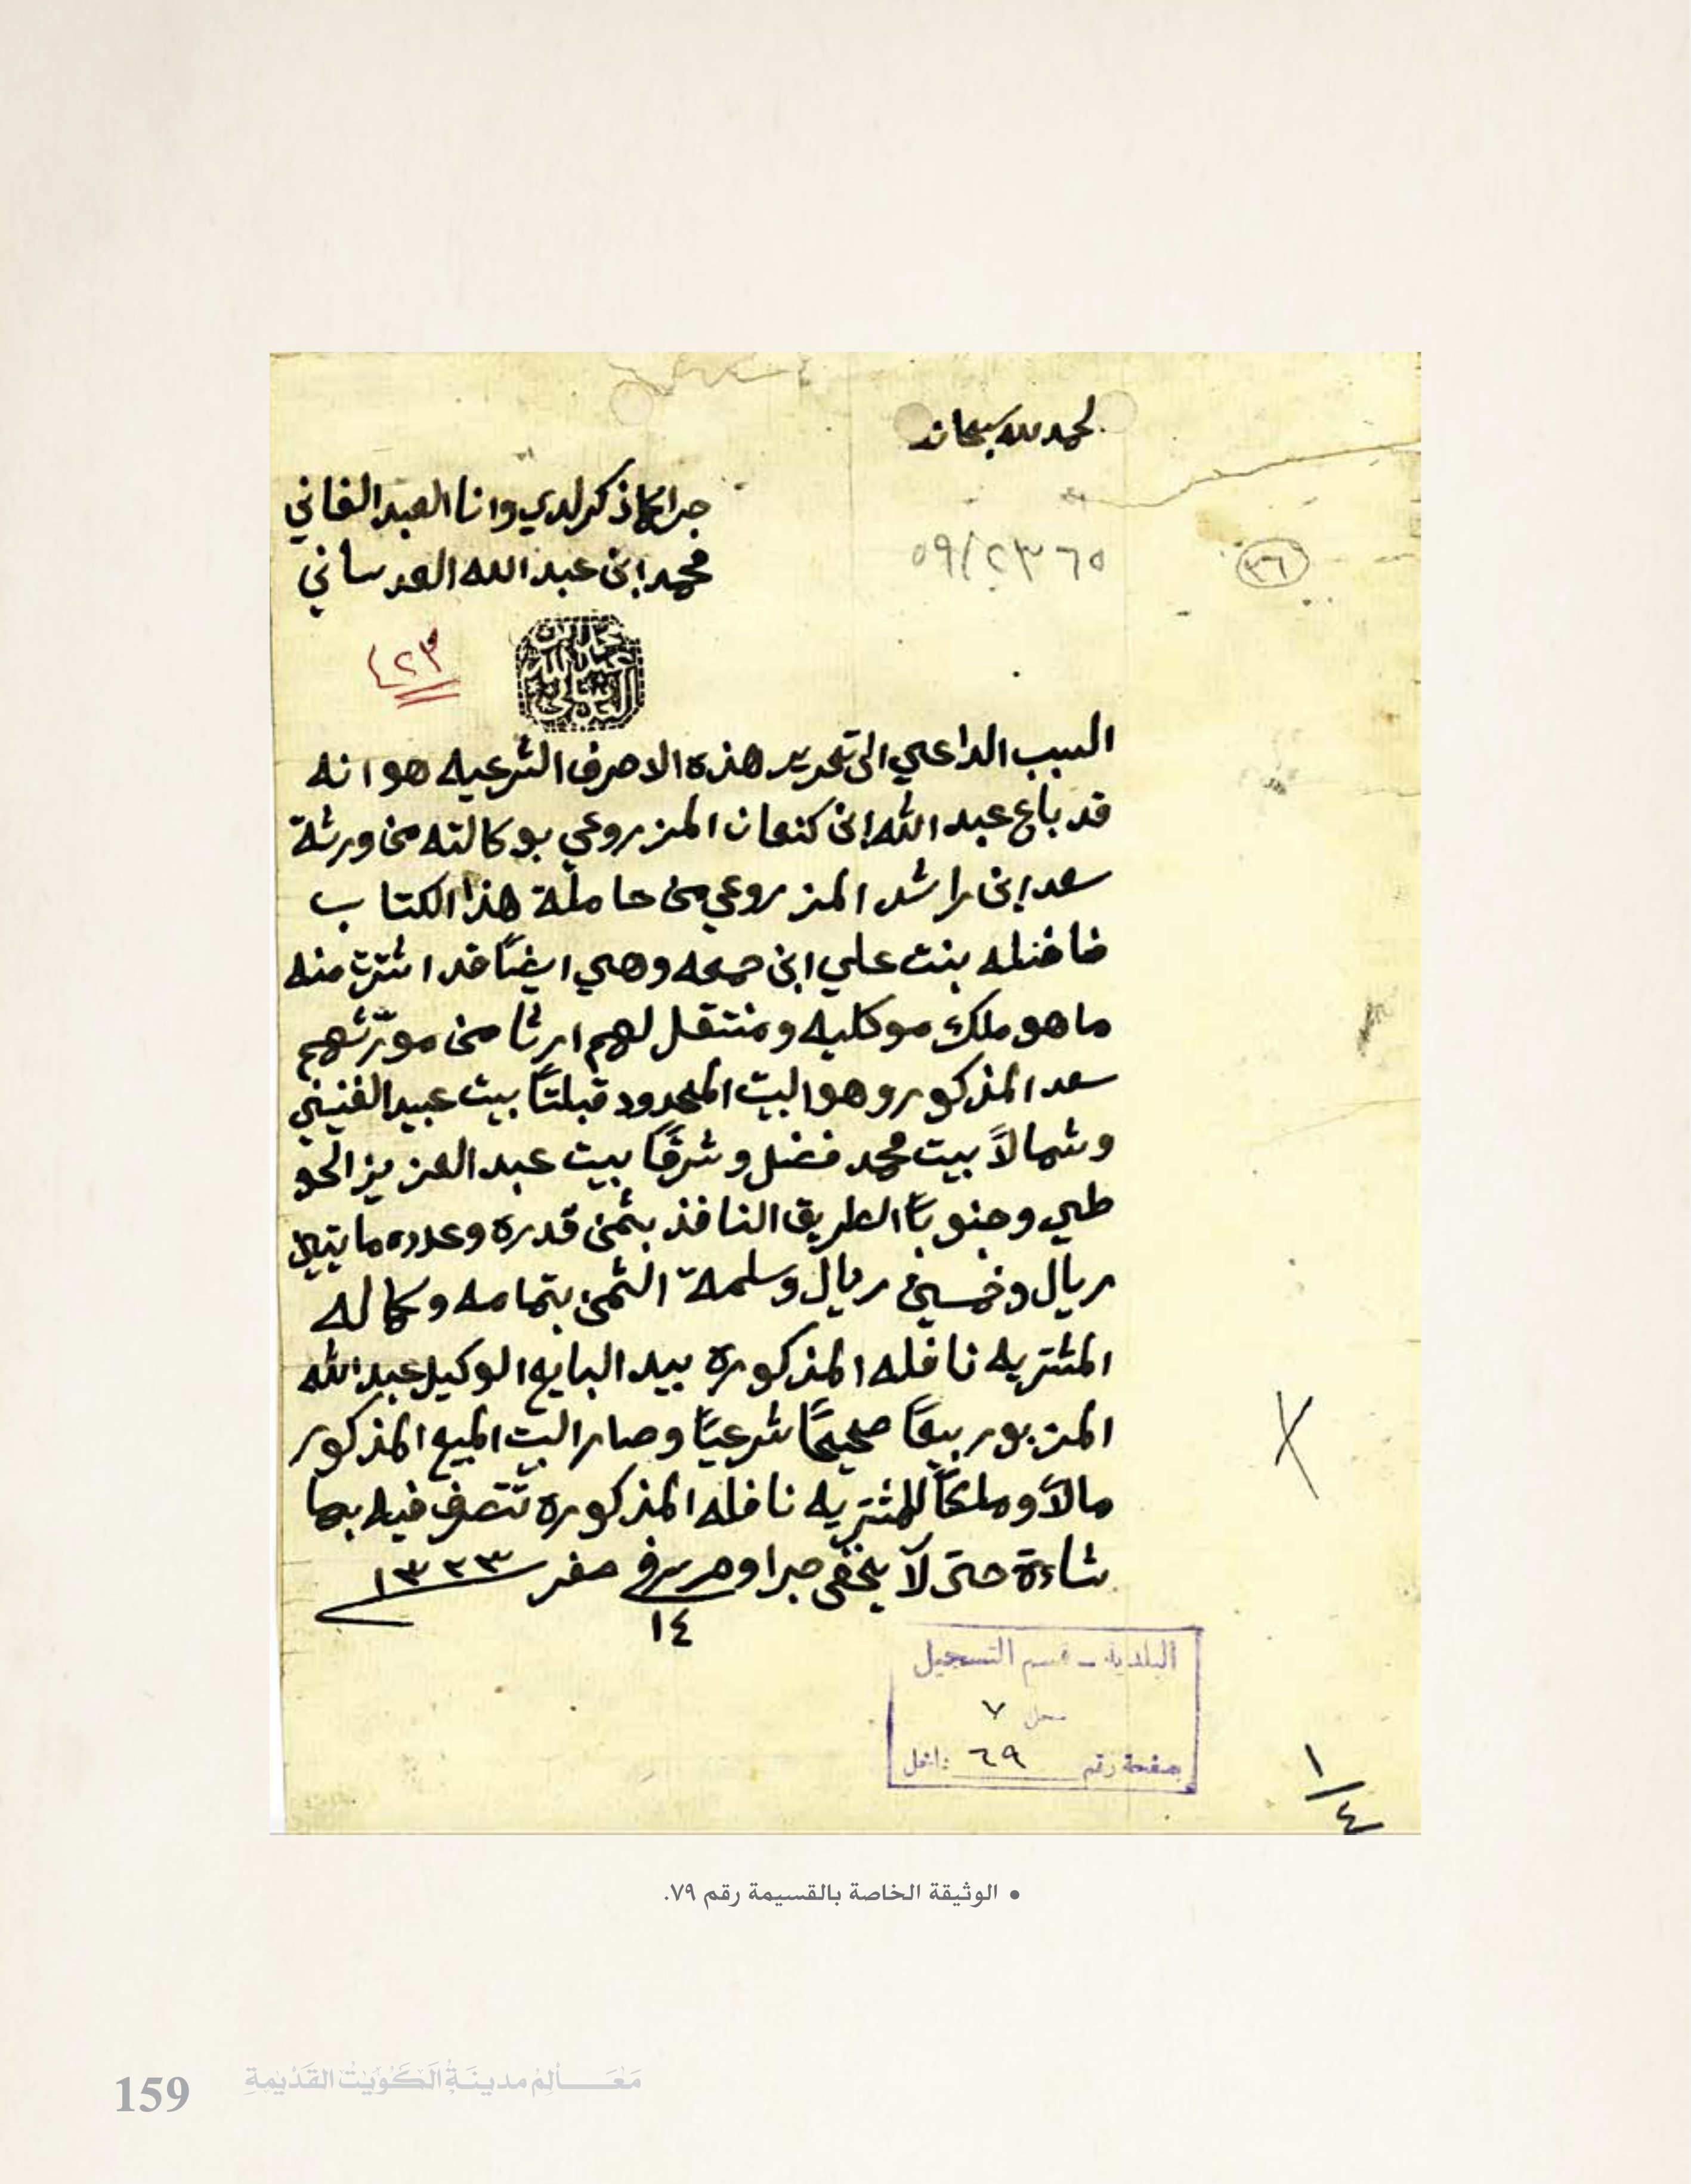 الحمد لله سبحانه
جرا كما ذكر لدي وانا العبد الفاني
محمد ابن عبد الله العدساني
٥٩/٢٣٦٥
٣٦
٤٢٣
محمد ابن عبد الله العدساني
السبب الداعي الى تحرير هذه الاحرف الشرعيه هو انه
قد باع عبد الله ابن كنعان المزروعي بوكالته من ورثة
سعد ابن راشد المزروعي من حاملة هذا الكتاب
نافله بنت علي ابن جمعه وهي ايضًا قد اشترت منه
ما هو ملك موكليه ومنتقل لهم ارثا من مورّثهم
سعد المذكور وهو البيت المحدود قبلتًا بيت عبيد الفنيني
وشمالاً بيت محمد فضل وشرقًا بيت عبد العزيز الحو
طي وجنوبًا الطريق النافذ بثمن قدره وعدده مايتين
ريال وخمسين ريال وسلمة الثمن بتمامه وكماله
المشتريه نافله المذكوره بيد البايع الوكيل عبد الله
المزبور بيعًا صحيحًا شرعيًا وصار البيت المبيع المذكور
مالاً وملكًا للمشتريه نافله المذكوره تتصرف فيه بما
شاءة حتى لا يخفى جرا وحرر في صفر ١٣٢٣
١٤
البلدية - قسم التسجيل
سجل ٧
صفحة رقم ٦٩ داخل
١/٤
• الوثيقة الخاصة بالقسيمة رقم ٧٩.
159 مَعَالِم مدينَة الكُوَيت القَدْيمةِ